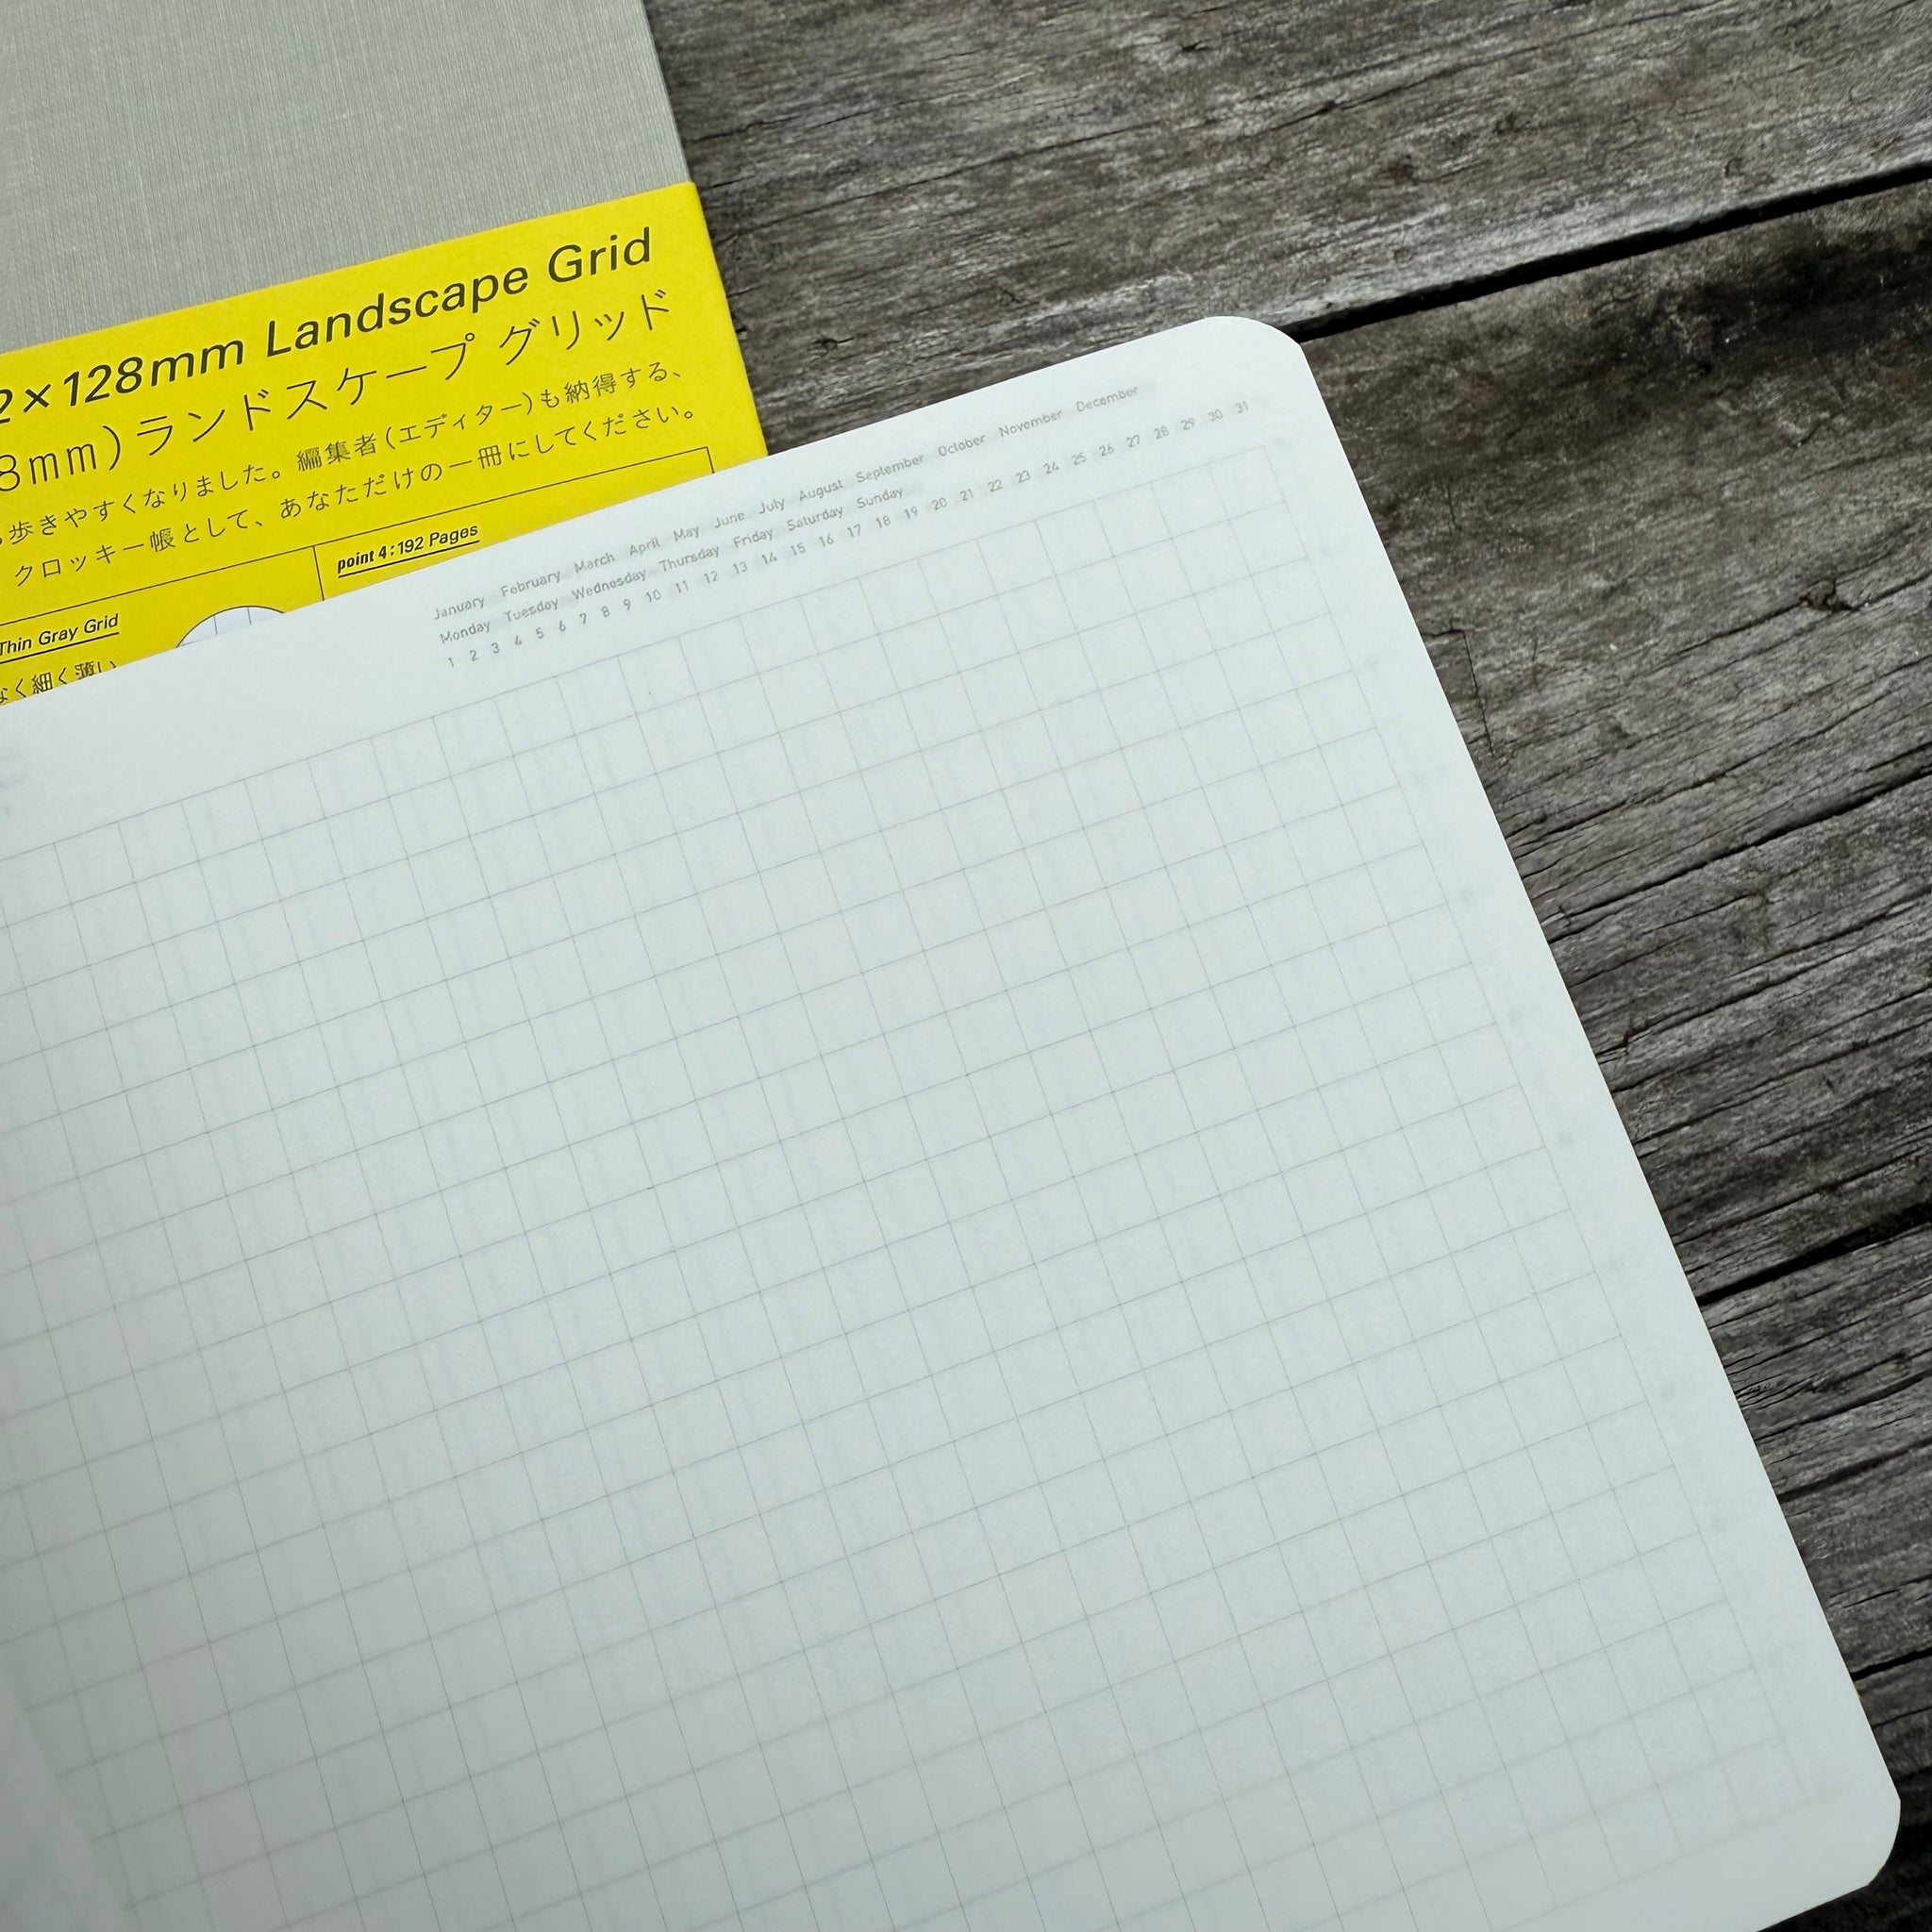 2×128mm Landscape Grid
8mm)ランドスケープ グリッド
歩きやすくなりました。編集者(エディター)も納得する、
クロッキー帳として、あなただけの一冊にしてください。
point 4:192 Pages
Thin Gray Grid
なく細く薄い
January February March April May June July August September October November December
Monday Tuesday Wednesday Thursday Friday Saturday Sunday
1 2 3 4 5 6 7 8 9 10 11 12 13 14 15 16 17 18 19 20 21 22 23 24 25 26 27 28 29 30 31